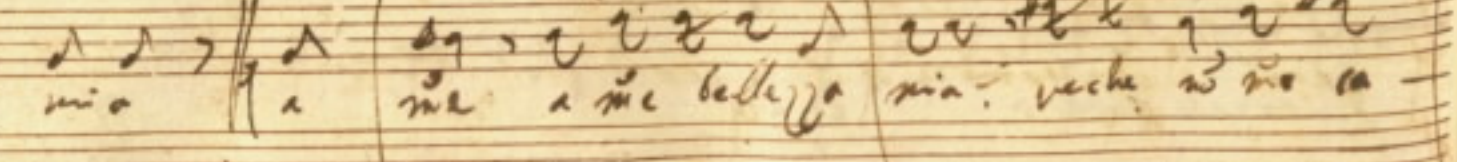 mio a me a me bellezza mia: peche no me ca